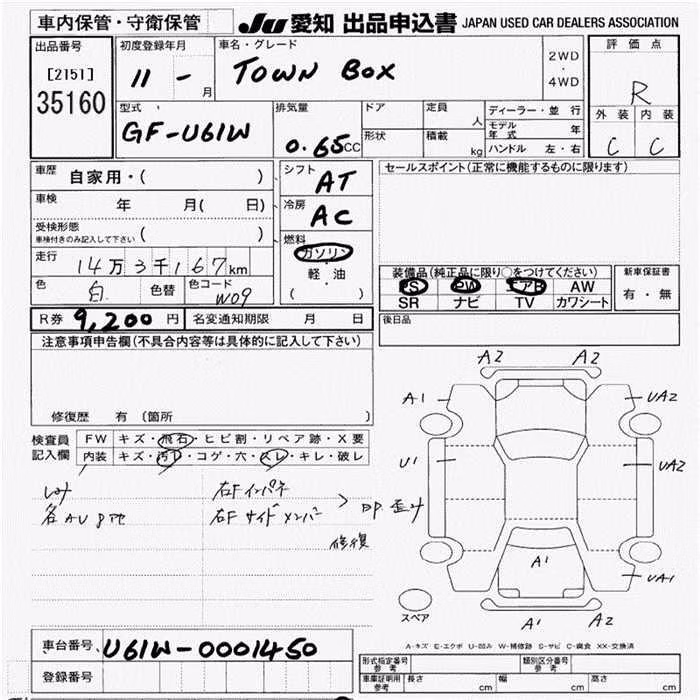 車内保管・守衛保管
JU 愛知 出品申込書 JAPAN USED CAR DEALERS ASSOCIATION
出品番号
[2151]
35160
初度登録年月
11 - 月
車名・グレード
TOWN BOX
2WD
・
4WD
評価点
R
外装 内装
C C
型式
GF-U61W
排気量
0.65cc
ドア
形状
定員 人
積載 kg
ディーラー・並行
モデル年式 年
ハンドル 左・右
車歴 自家用・( )
車検 年 月( 日)
受検形態
車検付きのみ記入して下さい ( )
走行 14万3千167km
色 白 色替 色コード W09
シフト AT
冷房 AC
燃料
ガソリン
・
軽・油
( )
セールスポイント(正常に機能するものに限ります)
装備品(純正品に限り〇をつけてください)
PS PW エアB AW
SR ナビ TV カワシート
新車保証書
有・無
R券 9,200円 名変通知期限 月 日
後日品
注意事項申告欄(不具合内容等は具体的に記入して下さい)
修復歴 有(箇所 )
検査員
記入欄
FW キズ・飛石・ヒビ割・リペア跡・X要
内装 キズ・汚レ・コゲ・穴・スレ・キレ・破レ
シミ
右Fインパネ
右Fサイドメンバー
歪み
修復
A2 A2
A1 UA2
U1 UA2
A1
UA1
A1 A2
スペア
A-キズ E-エクボ U-凹み W-補修跡 S-サビ C-腐食 XX-交換済
車台番号 U61W-0001450
登録番号
形式指定番号
参考
類別区分番号
参考
車庫証明用
参考
長さ cm 幅 cm 高さ cm